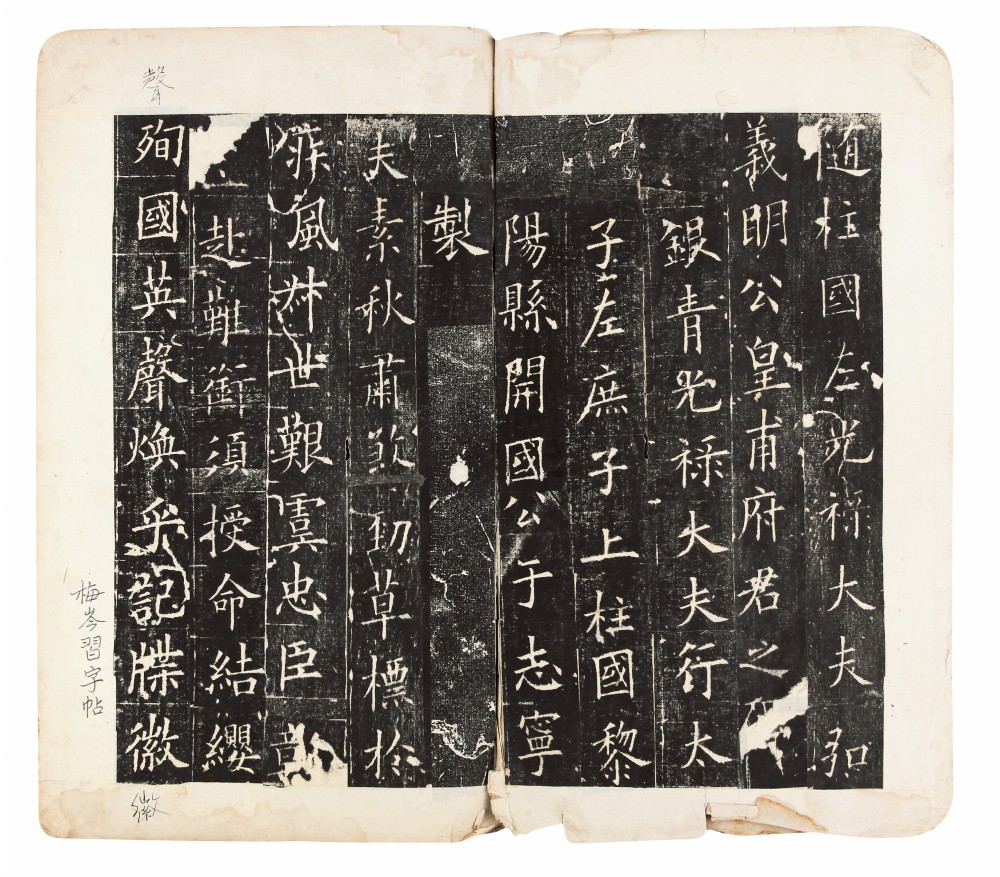 随柱國左光祿大夫弘
義明公皇甫府君之
銀青光祿大夫行太
子左庶子上柱國黎
陽縣開國公于志寧
製
夫素秋肅煞勁草標於
疾風叔世艱虞忠臣
赴難銜須授命結纓
殉國英聲煥乎記牒徽
聲
徽
梅岑習字帖